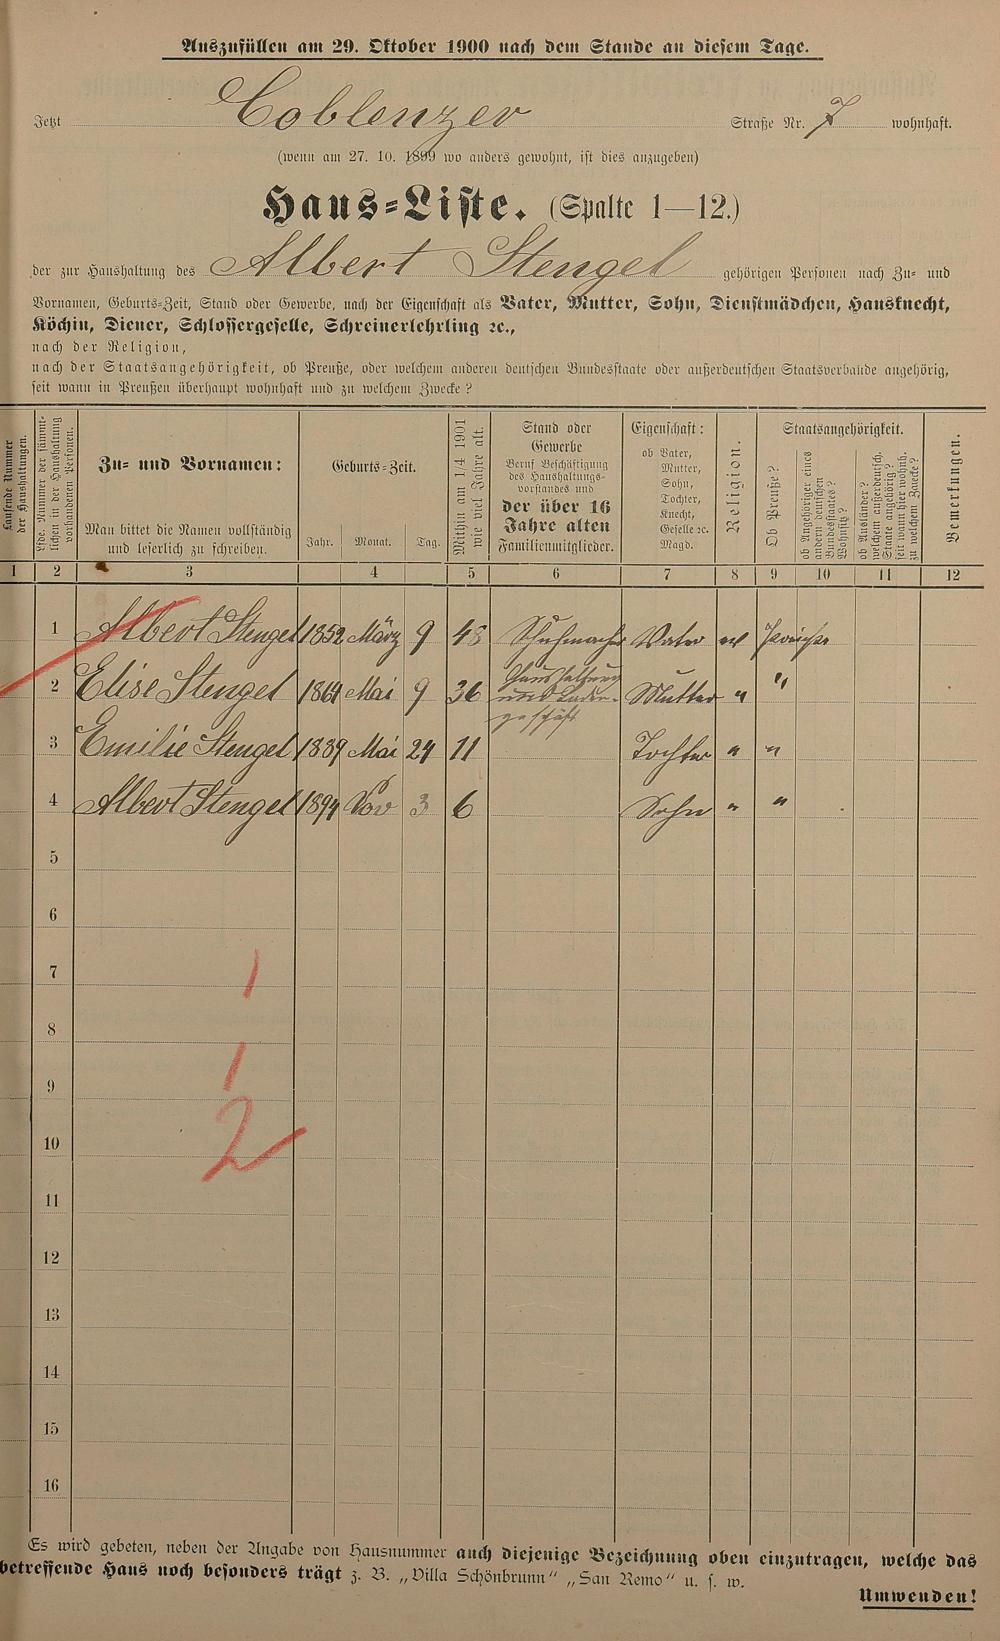 Auszufüllen am 29. Oktober 1900 nach dem Stande an diesem Tage.
Jetzt Coblenzer Straße Nr. 7 wohnhaft.
(wenn am 27. 10. 1899 wo anders gewohnt, ist dies anzugeben)
Haus-Liste. (Spalte 1—12.)
der zur Haushaltung des Albert Stengel gehörigen Personen nach Zu- und
Vornamen, Geburts-Zeit, Stand oder Gewerbe, nach der Eigenschaft als Vater, Mutter, Sohn, Dienstmädchen, Hausknecht,
Köchin, Diener, Schlossergeselle, Schreinerlehrling ꝛc.,
nach der Religion,
nach der Staatsangehörigkeit, ob Preuße, oder welchem anderen deutschen Bundesstaate oder außerdeutschen Staatsverbande angehörig,
seit wann in Preußen überhaupt wohnhaft und zu welchem Zwecke?
Laufende Nummer
der Haushaltungen.
Lfde. Nummer der sämmt-
lichen in der Haushaltung
vorhandenen Personen.
Zu- und Vornamen:
Man bittet die Namen vollständig
und leserlich zu schreiben.
Geburts-Zeit.
Jahr. Monat. Tag.
Mithin am 1/4 1901
wie viel Jahre alt.
Stand oder
Gewerbe
Beruf Beschäftigung
des Haushaltungs-
vorstandes und
der über 16
Jahre alten
Familienmitglieder.
Eigenschaft:
ob Vater,
Mutter,
Sohn,
Tochter,
Knecht,
Geselle ꝛc.
Magd.
Religion.
Staatsangehörigkeit.
Ob Preuße?
ob Angehöriger eines
andern deutschen
Bundesstaates?
Wohnsitz?
ob Ausländer?
welchem außerdeutsch.
Staate angehörig?
seit wann hier wohnh.
zu welchem Zwecke?
Bemerkungen.
1 2 3 4 5 6 7 8 9 10 11 12
1 Albert Stengel 1852 März 9 48 Schuhmacher Vater ev Preuße
2 Elise Stengel 1864 Mai 9 36 Haushaltung und Laden-geschäft Mutter " "
3 Emilie Stengel 1889 Mai 24 11 Tochter " "
4 Albert Stengel 1894 Nov 3 6 Sohn " "
5
6
7
1
8
1
9
2
10
11
12
13
14
15
16
Es wird gebeten, neben der Angabe von Hausnummer auch diejenige Bezeichnung oben einzutragen, welche das
betreffende Haus noch besonders trägt z. B. „Villa Schönbrunn" „San Remo" u. s. w.
Umwenden!